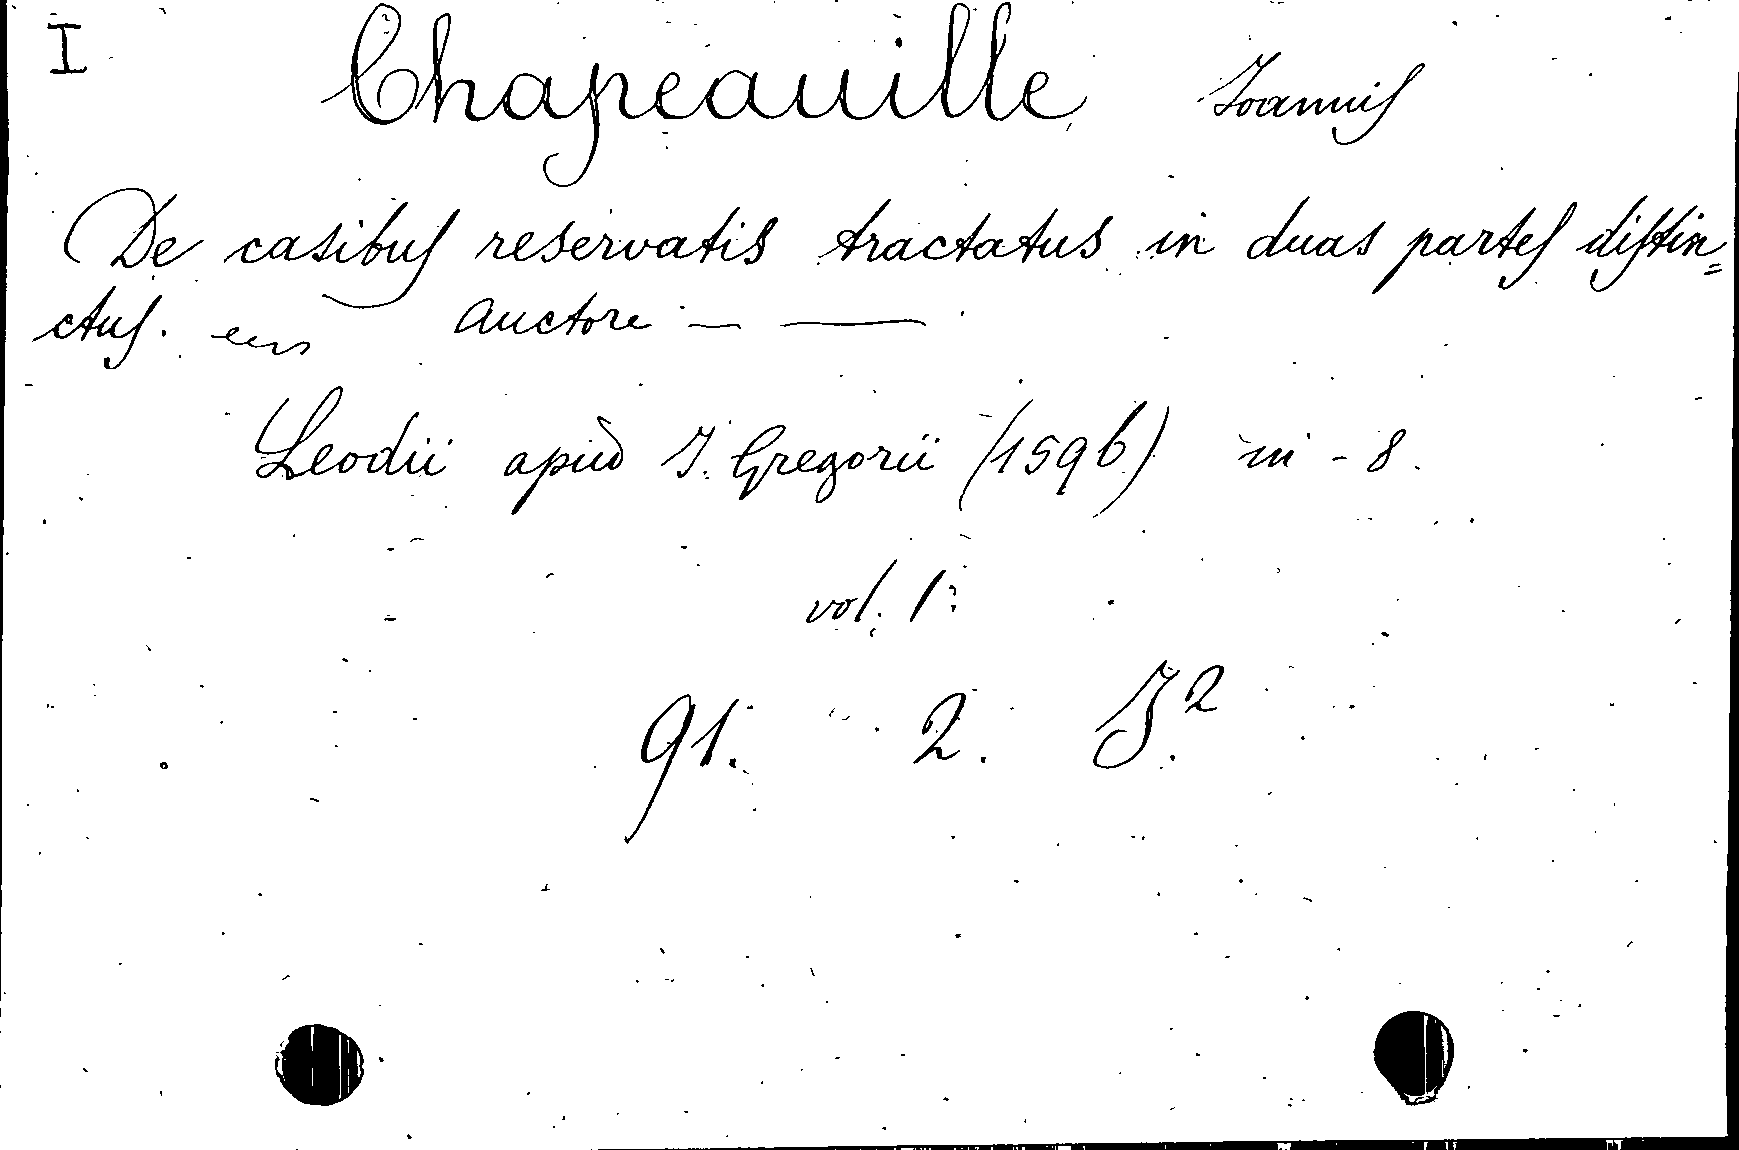 I
Chapeauille Joannis
De casibus reservatis tractatus in duas partes distin=
ctus. Auctore — —
Leodii apud J. Gregorii (1596) in - 8.
vol. 1:
91. 2. J.2